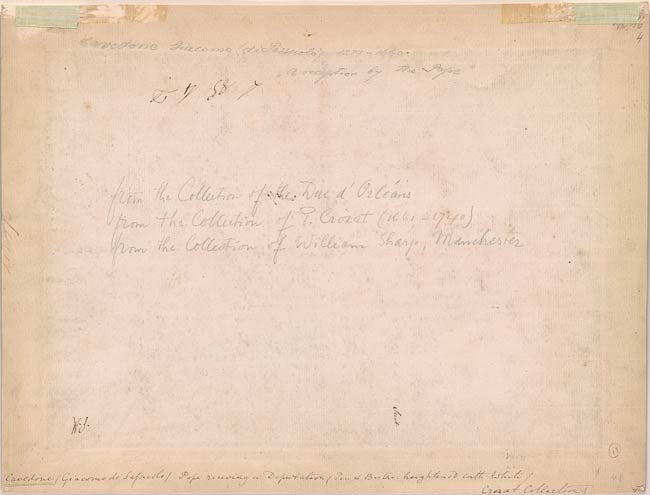 4
Cavedone Giacomo (di Sassuolo) 1577-1660
"a reception by the Pope"
from the Collection of the Duc d'Orléans
from the Collection of P. Crozat (1661-1740)
from the Collection of William Sharp, Manchester
W.S.
Cavedone / Giacomo de Sassuolo / Pope receiving a Deputation / Pen & Bistre heightened with White /
Crozat Collection